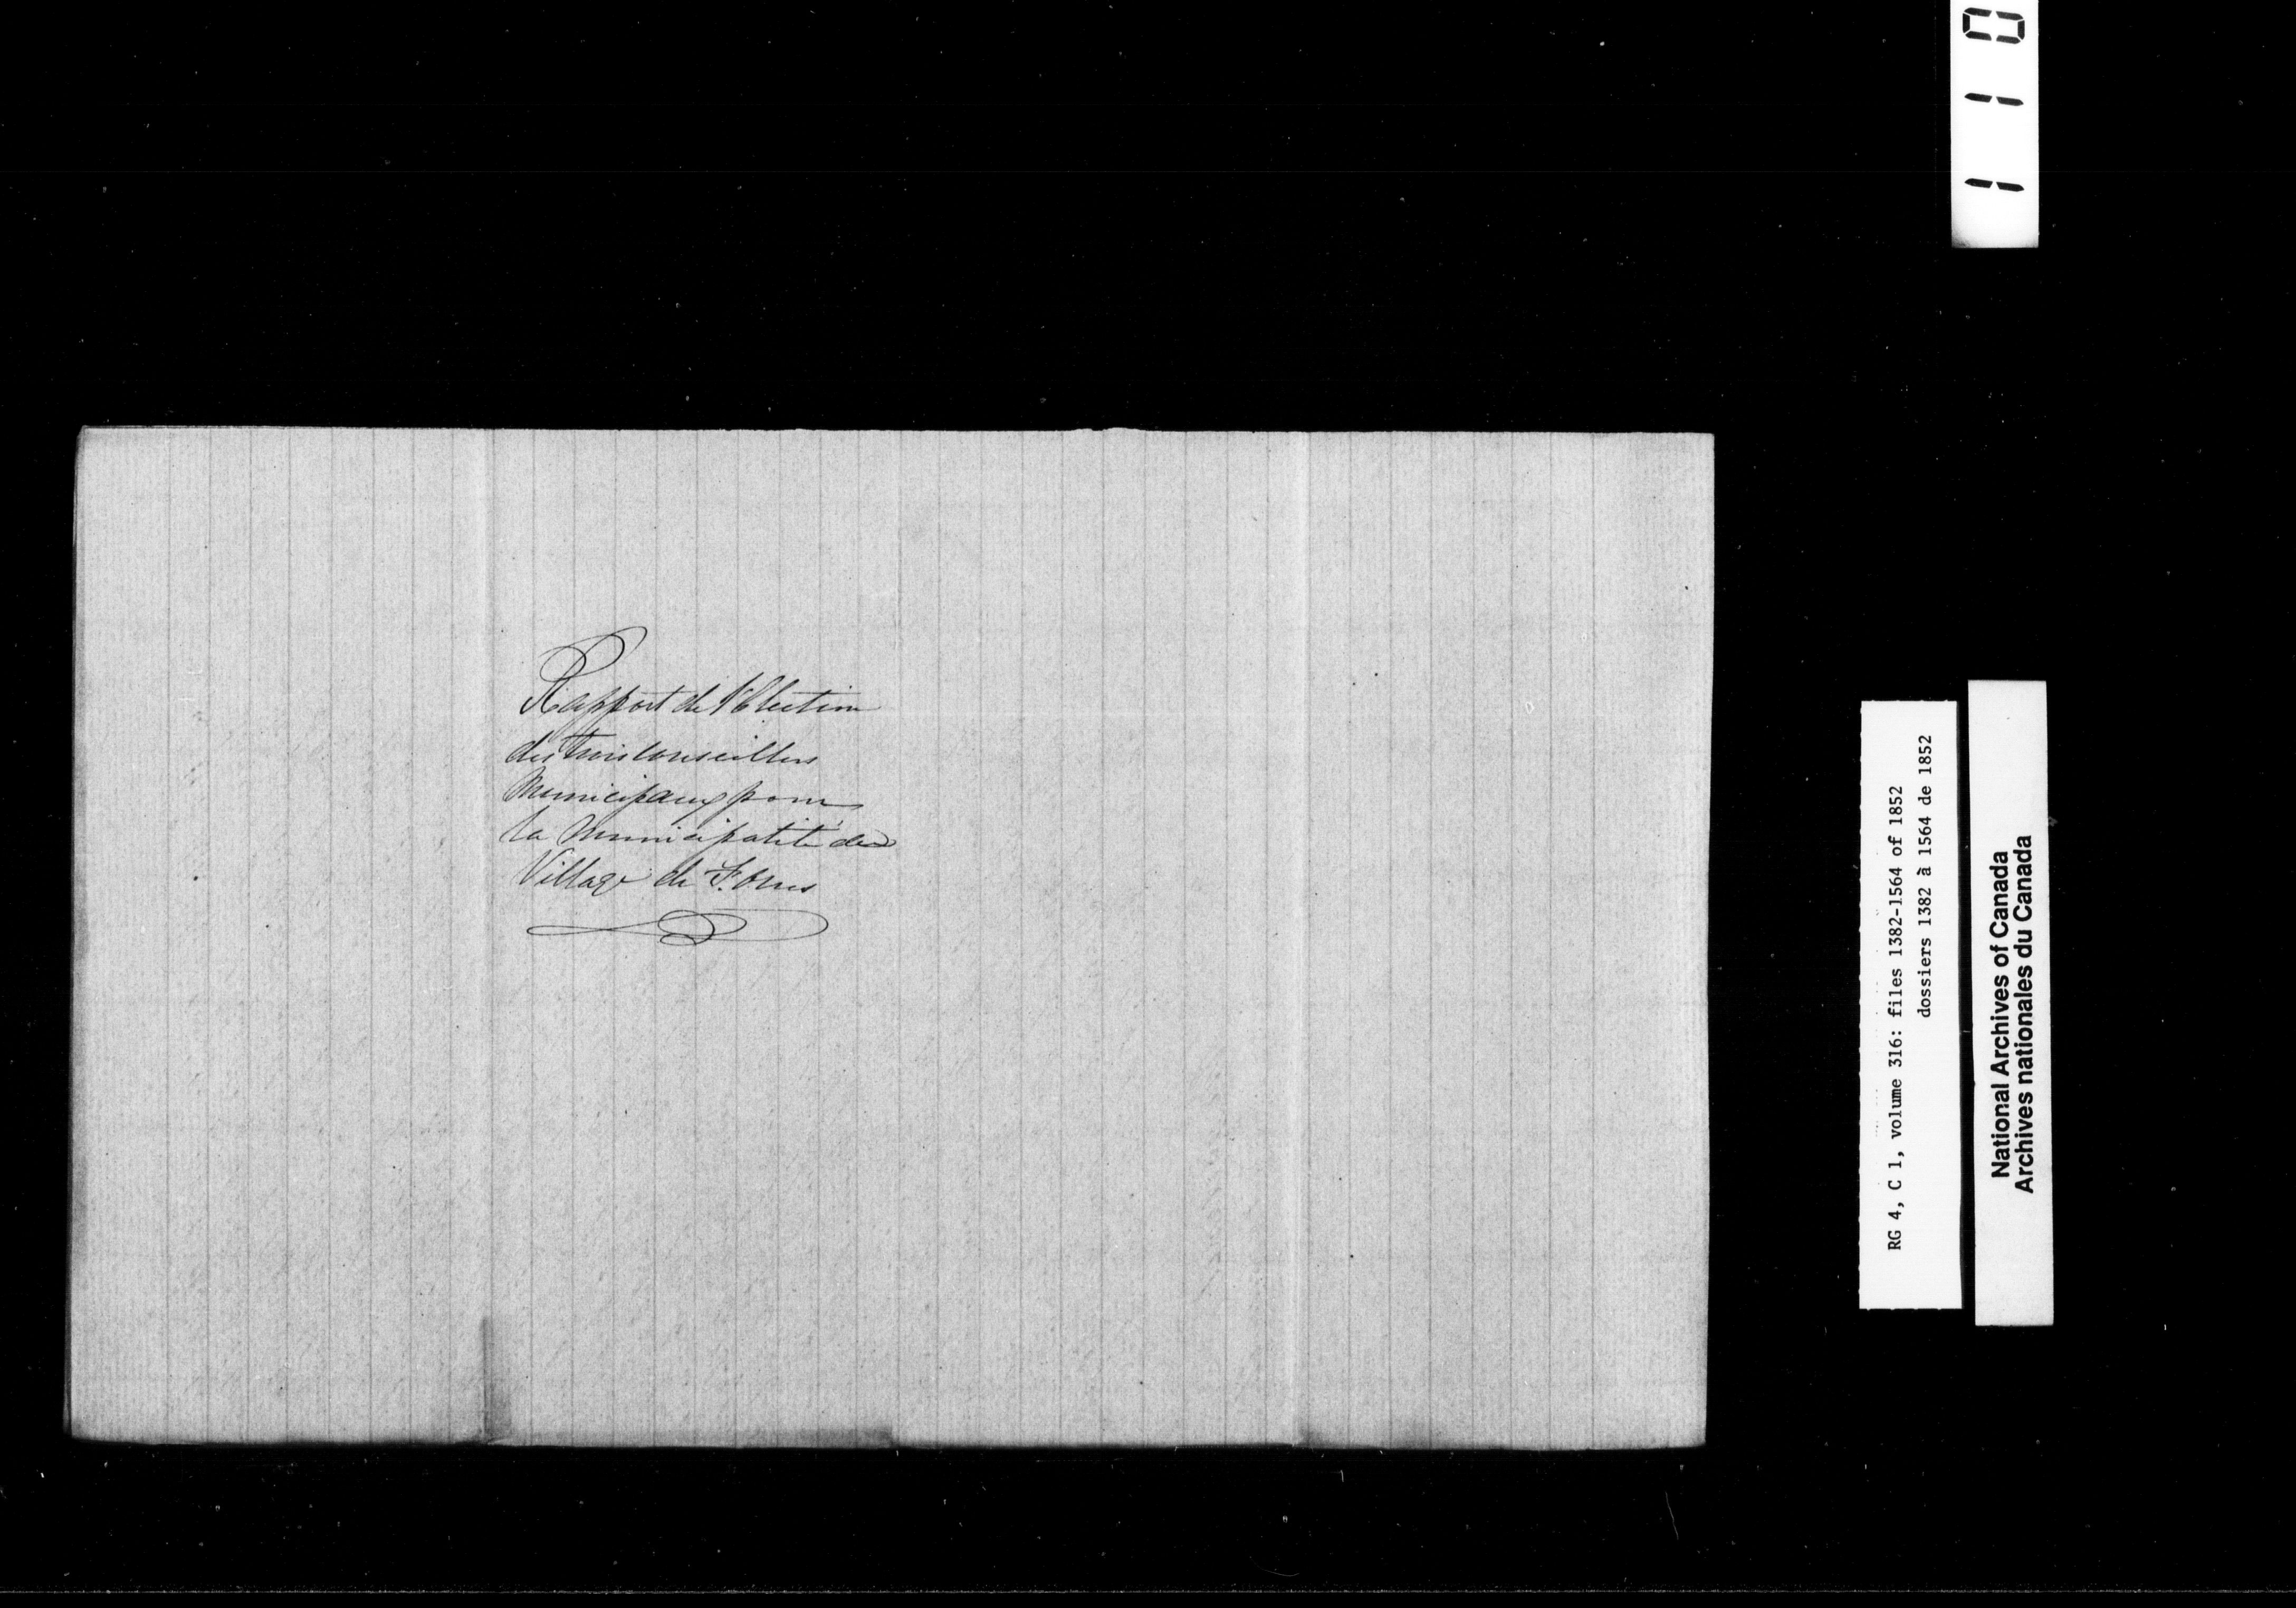 Rapport de l'Election
des trois Conseillers
Municipaux pour
la Municipalité du
Village de St. Ours
RG 4, C 1, volume 316: files 1382-1564 of 1852
dossiers 1382 à 1564 de 1852
National Archives of Canada
Archives nationales du Canada
110